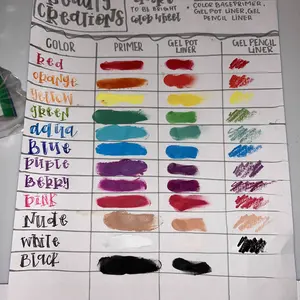 Beauty
Creations
TO BE BRIGHT
COLOR WHEEL
• COLOR BASE PRIMER,
GEL POT LINER, GEL
PENCIL LINER
COLOR
PRIMER
GEL POT
LINER
GEL PENCIL
LINER
RED
ORANGE
YELLOW
GREEN
AQUA
BLUE
PURPLE
BERRY
PINK
NUDE
WHITE
BLACK